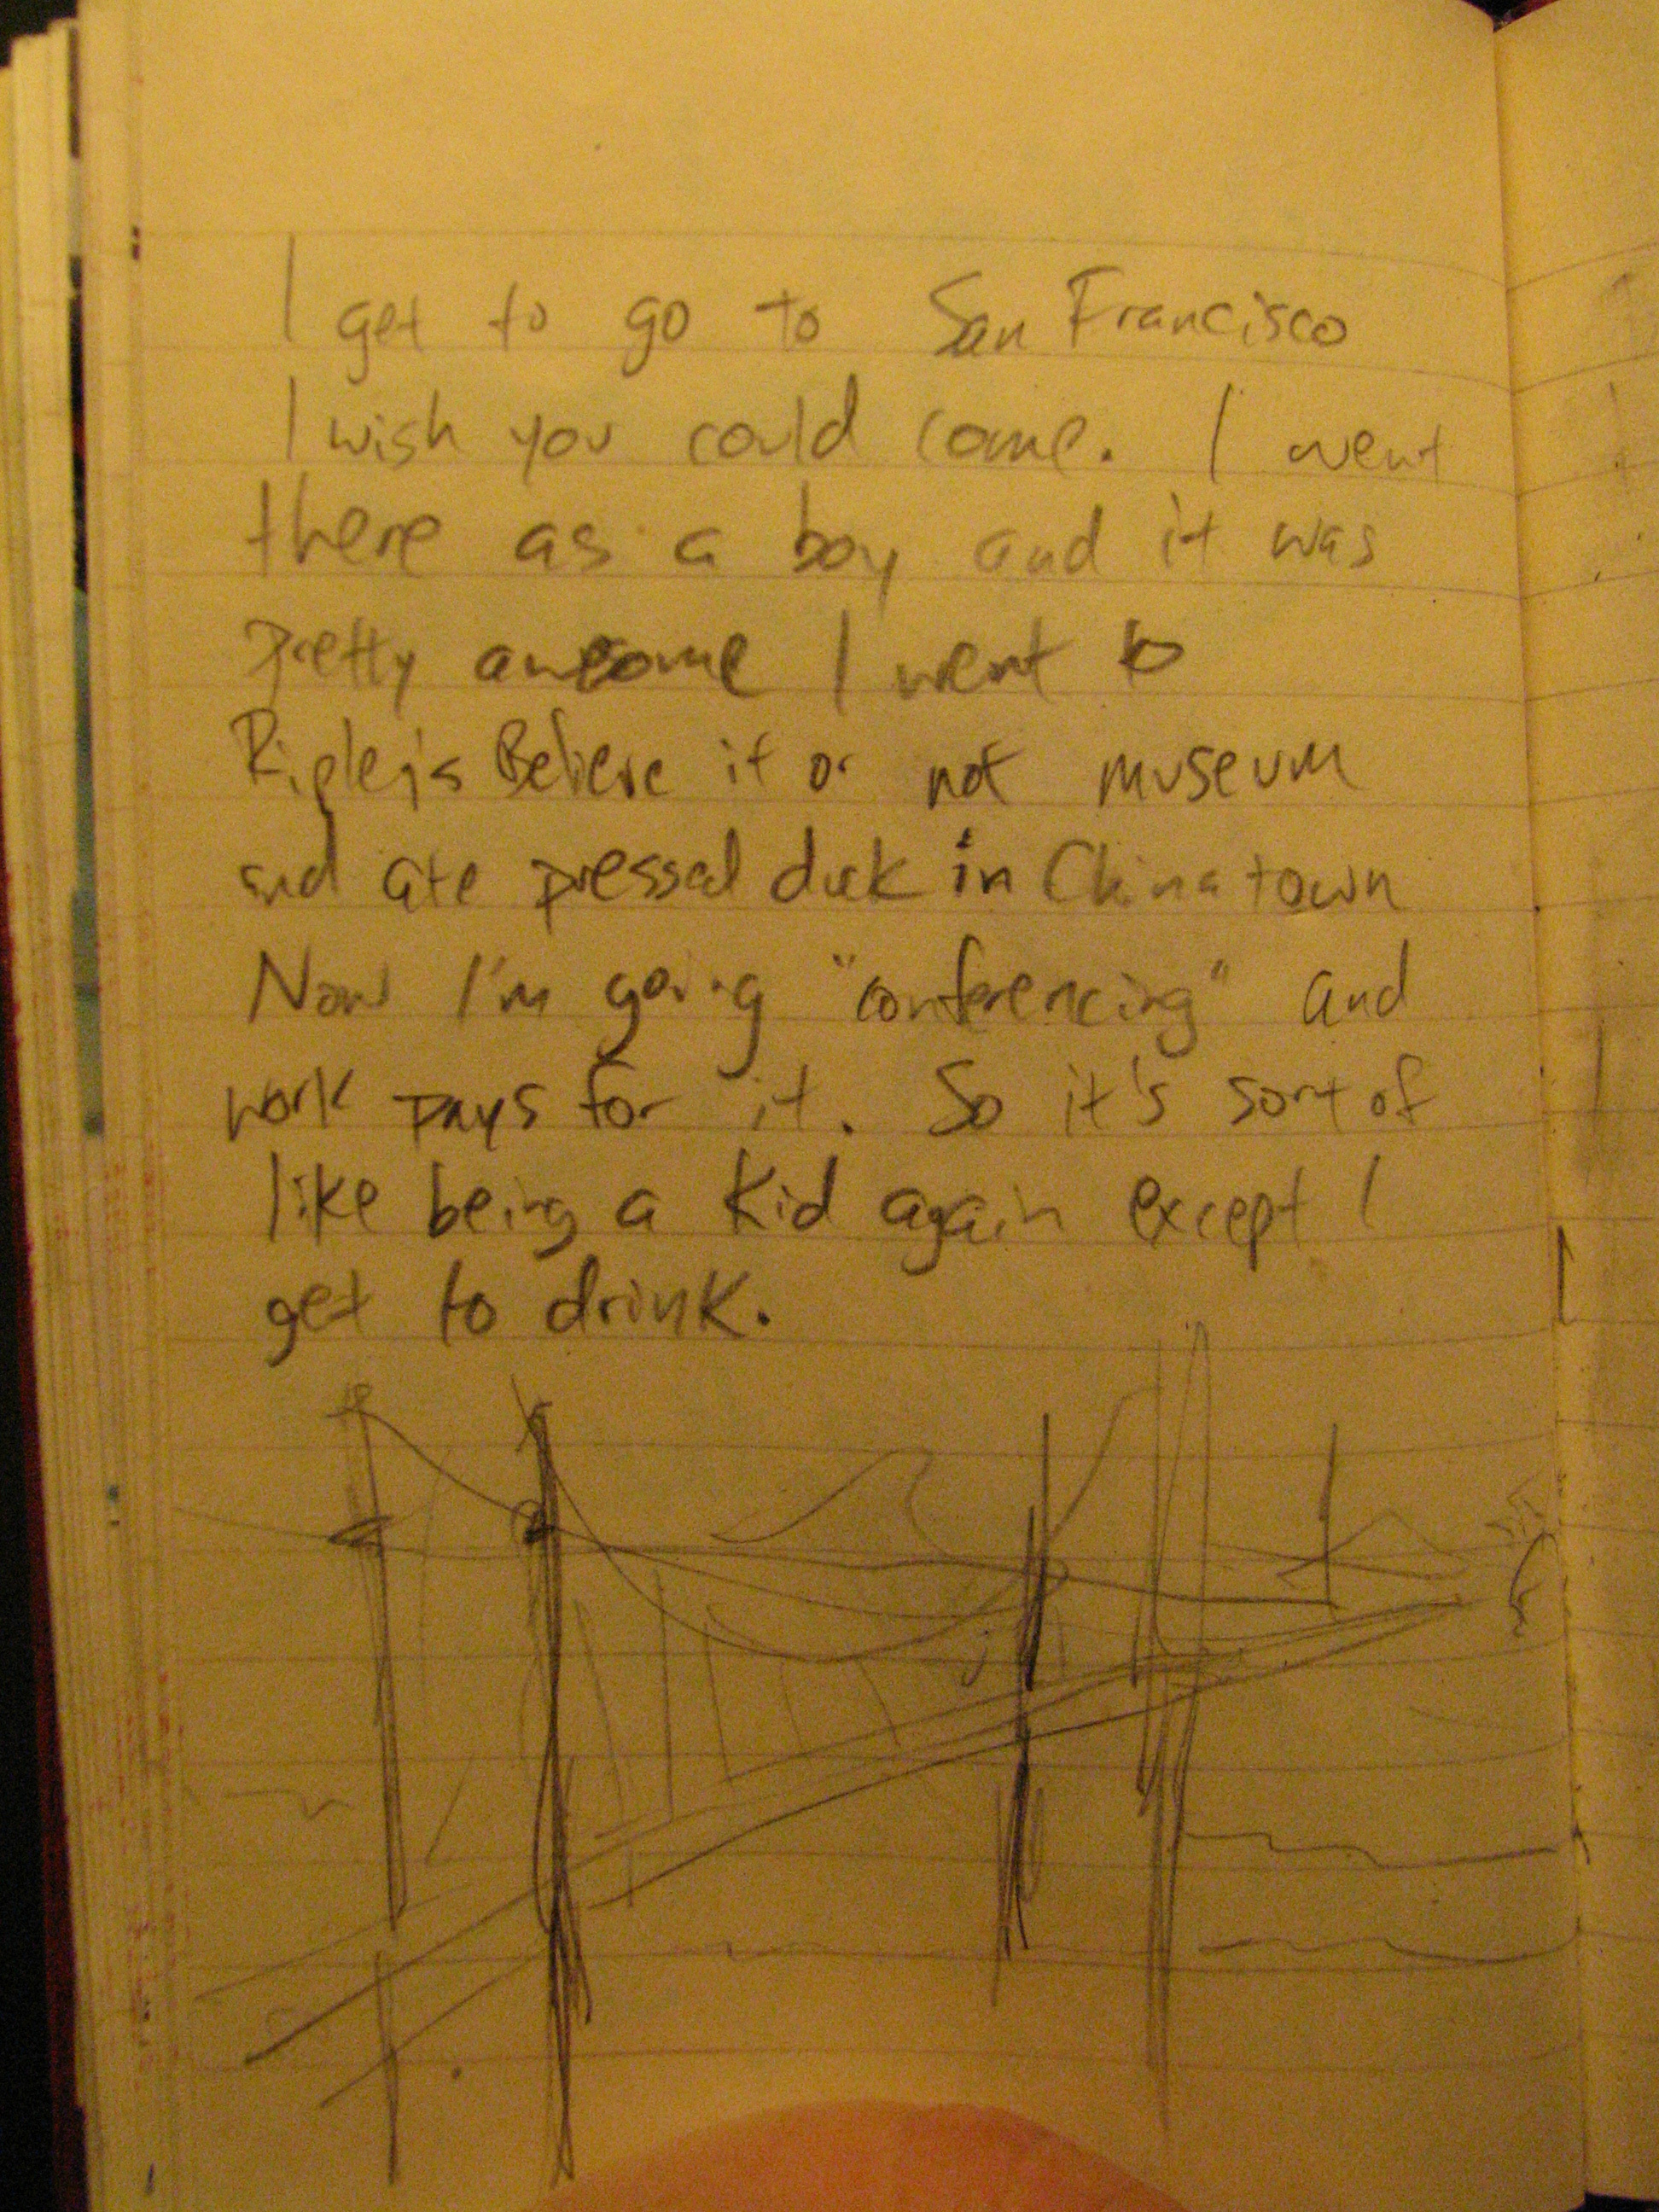 I get to go to San Francisco
I wish you could come. I went
there as a boy and it was
pretty awesome I went to
Ripley's Believe it or not museum
and ate pressed duck in Chinatown
Now I'm going "conferencing" and
work pays for it. So it's sort of
like being a kid again except I
get to drink.